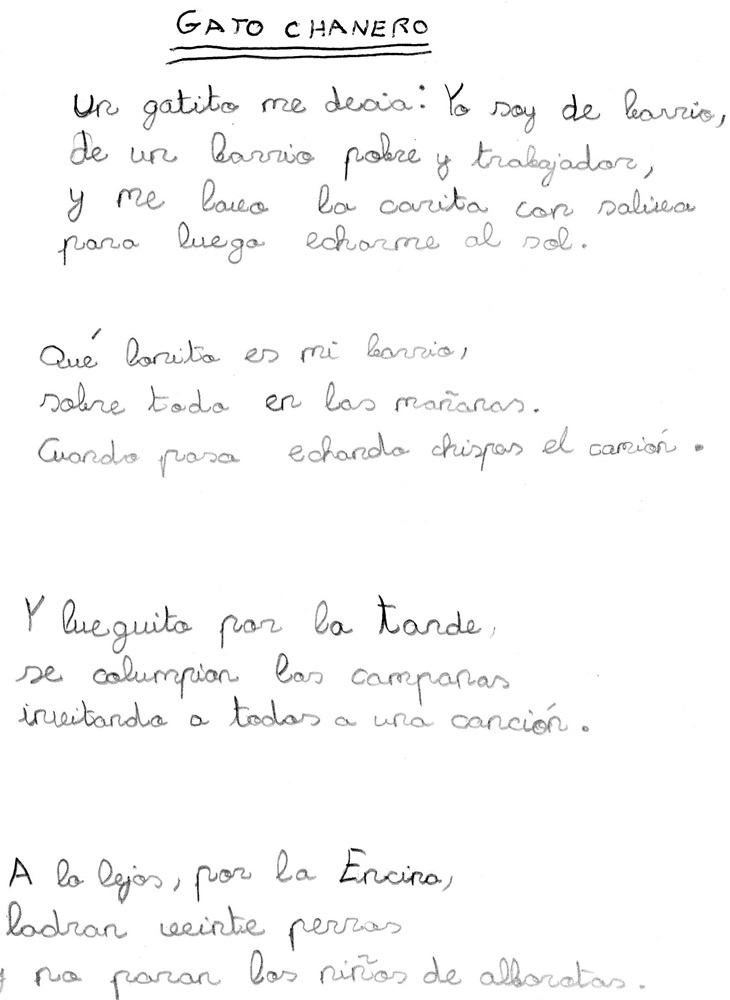 GATO CHANERO
Un gatito me decia: Yo soy de barrio,
de un barrio pobre y trabajador,
y me lavo la carita con saliva
para luego echarme al sol.
Qué bonito es mi barrio,
sobre todo en las mañanas.
Cuando pasa echando chispas el camión.
Y lueguito por la tarde,
se columpian las campanas
invitando a todos a una canción.
A lo lejos, por la Encina,
ladran veinte perros
y no paran los niños de alborotas.